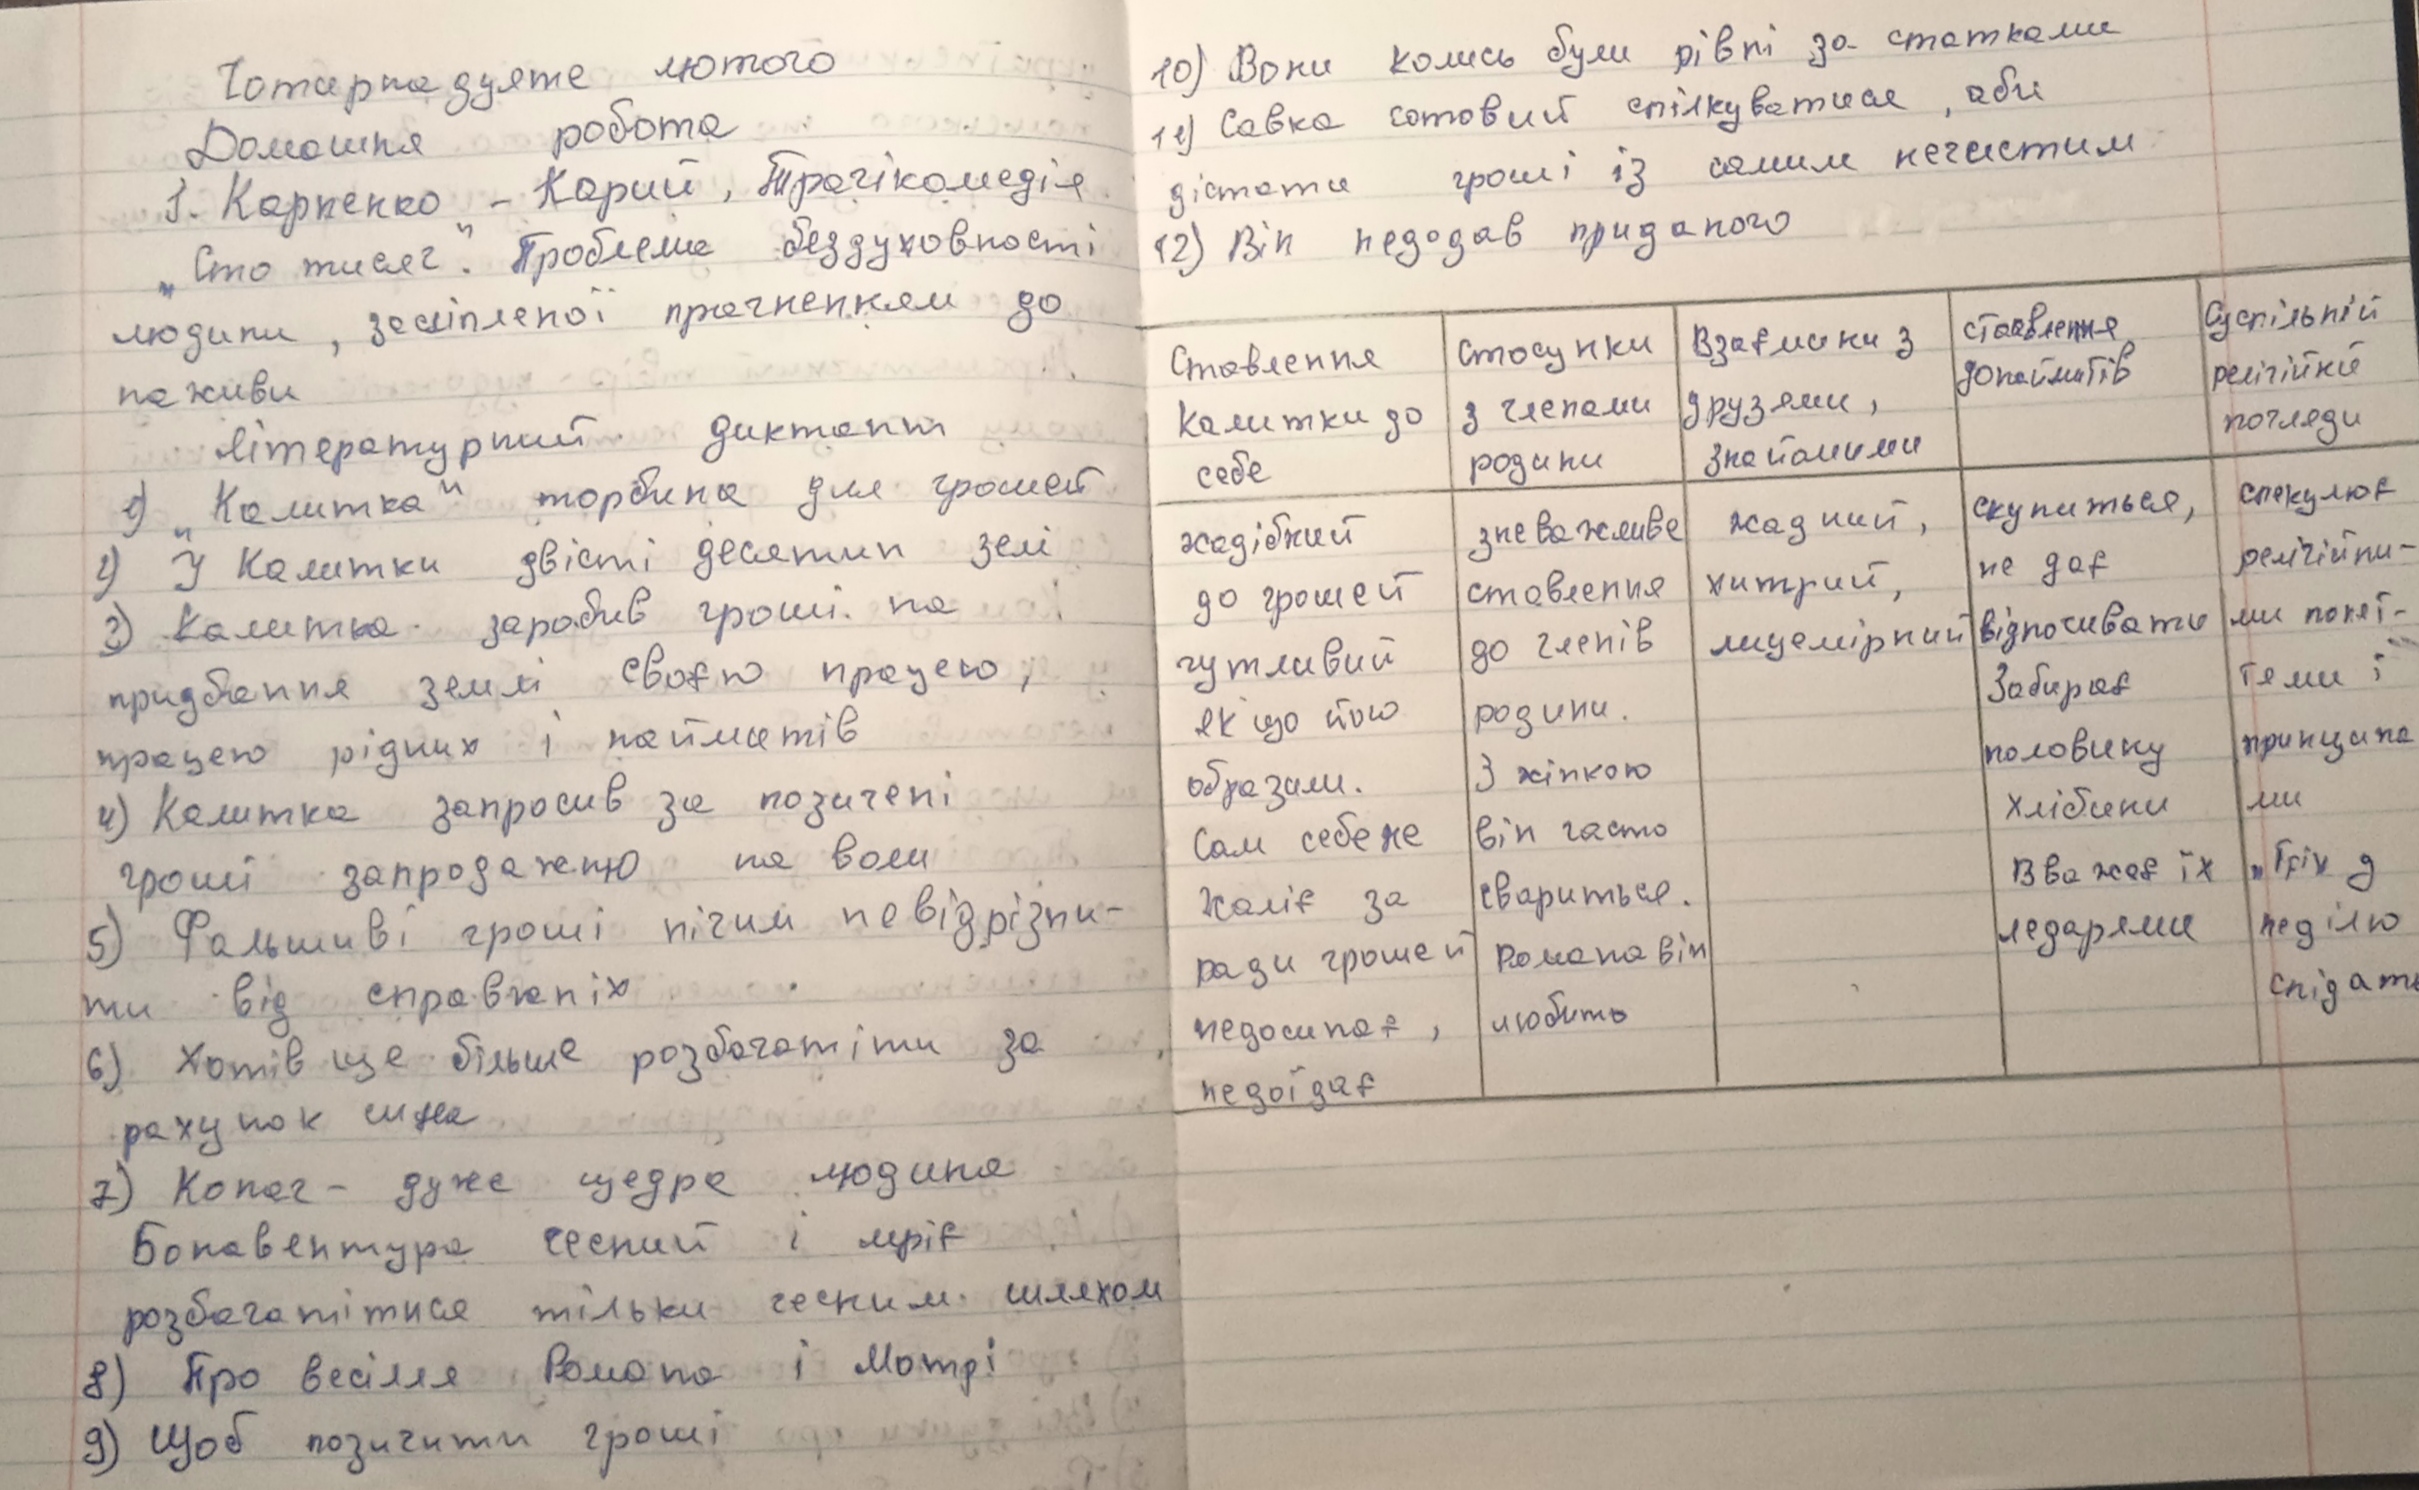 Чотирнадцяте лютого
Домашня робота
І. Карпенко - Карий, Трагікомедія
„Сто тисяч". Проблема бездуховності
людини, засліпленої прагненням до
наживи
Літературний диктант
1) „Калитка" торбина для грошей
2) У Калитки двісті десятин земі
3) Калитка заробив гроші на
придбання землі своєю працею,
працею рідних і наймитів
4) Калитка запросив за позичені
гроші запродажню на воли
5) Фальшиві гроші нічим невідрізни-
ти від справжніх
6) Хотів ще більше розбагатіти за
рахунок сина
7) Копач - дуже щедра людина
Бонавентура чесний і мріє
розбагатітися тільки чесним шляхом
8) Про весілля Романа і Мотрі
9) Щоб позичити гроші
10) Вони колись були рівні за статками
11) Савка готовий спілкуватися, аби
дістати гроші із самим нечистим
12) Він недодав приданого
Ставлення
Калитки до
себе
Стосунки
з членами
родини
Взаємини з
друзями,
знайомими
ставлення
донаймитів
Суспільній
релігійні
погляди
жадібний
до грошей
чутливий
якщо його
образили.
Сам себе не
жаліє за
ради грошей
недосипає,
недоїдає
зневажливе
ставлення
до членів
родини.
З жінкою
він часто
свариться.
Романа він
любить
жадний,
хитрий,
лицемірний
скупиться,
не дає
відпочивати
Забирає
половину
хлібини
Вважає їх
ледарями
спекулює
релігійни-
ми поняt-
тями і
принципа
ми
„Гріх у
неділю
снідать